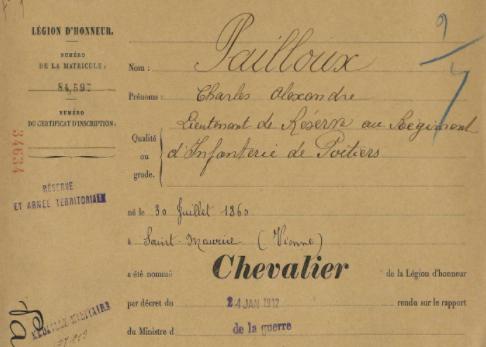 LÉGION D'HONNEUR.
NUMÉRO
DE LA MATRICULE:
84,597
NUMÉRO
DU CERTIFICAT D'INSCRIPTION:
34634
RÉSERVE
ET ARMÉE TERRITORIALE
MÉDAILLE MILITAIRE
9
4
Nom: Pailloux
Prénoms: Charles Alexandre
Qualité ou grade. Lieutenant de Réserve au Régiment
d'Infanterie de Poitiers
né le 30 Juillet 1860
à Saint-Maurice (Vienne)
a été nommé Chevalier de la Légion d'honneur
par décret du 24 JAN 1912 rendu sur le rapport
du Ministre d de la guerre